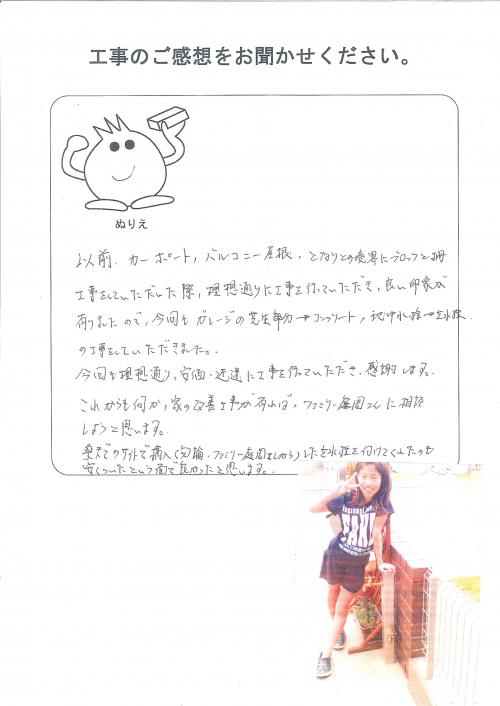 工事のご感想をお聞かせください。
ぬりえ
以前、カーポート、バルコニー屋根、となりとの境界にブロックと柵
工事をしていただいた際、理想通りに工事を行っていただき、良い印象が
有りましたので、今回もガレージの芝生部分→コンクリート、地中水栓→立水栓
の工事をしていただきました。
今回も理想通り、安価・迅速に工事を行っていただき、感謝します。
これからも何か、家の改善工事が有れば、ファミリー庭園さんに相談
しようと思います。
楽天でのサイトで購入(勿論、ファミリー庭園さんから)した立水栓を付けてくれたのも
安くついたという面で良かったと思います。